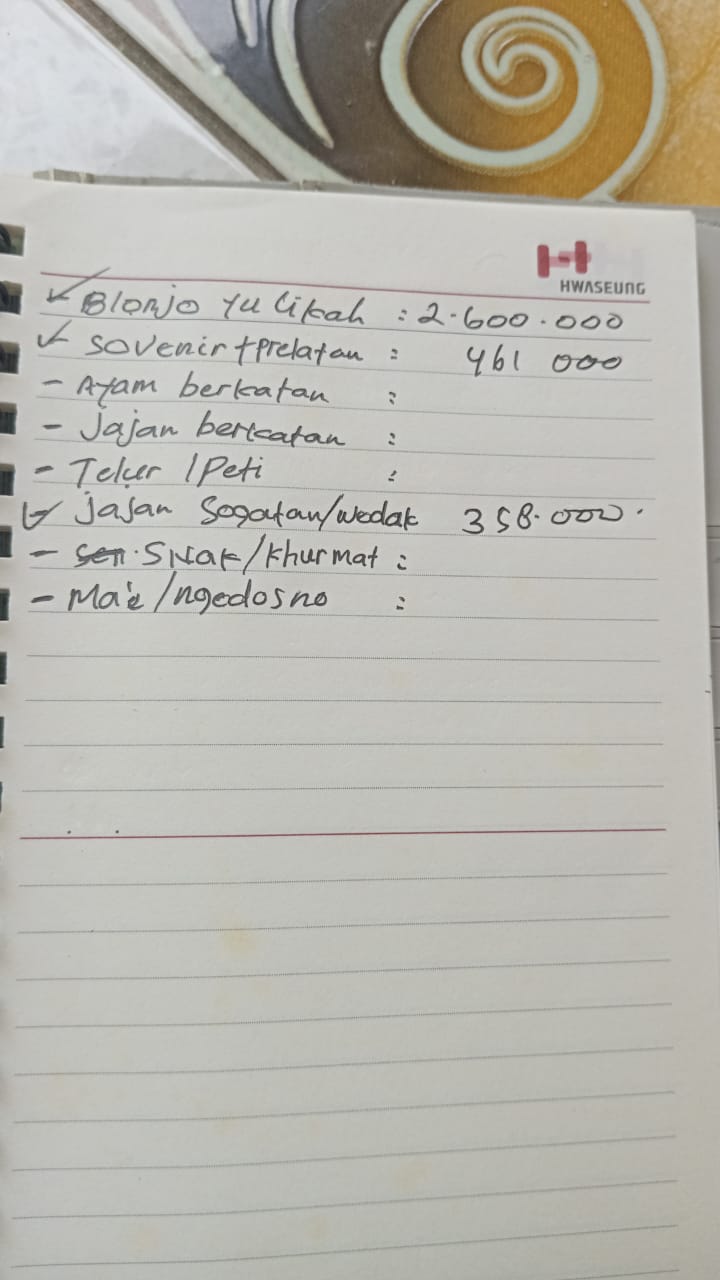 HWASEUNG
✓ Blonjo Yu Likah : 2.600.000
✓ Sovenir + prelatan : 461 000
- Ayam berkatan :
- Jajan berkatan :
- Telur 1 Peti :
✓ Jajan Sogatan/wedak 358.000.
- Snak/khurmat :
- Ma'e/ngedosno :